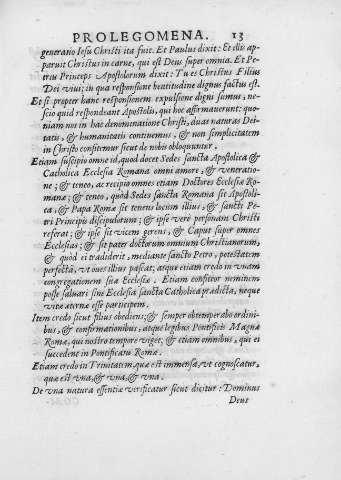 PROLEGOMENA. 13
generatio Iesu Christi ita fuit. Et Paulus dixit: Et ellis ap
paruit Christus in carne, qui est Deus super omnia. Et Pe-
trus Princeps Apostolorum dixit: Tu es Christus Filius
Dei viui; in qua responsione beatitudine dignus factus est.
Et si propter hanc responsionem expulsione digni sumus, ne-
scio quid respondeant Apostoli, qui hoc affirmauerunt: quo-
niam nos in hac denominatione Christi, duas naturas Dei-
tatis, & humanitatis continemus, & non simplicitatem
in Christo consitemur sicut de nobis obloquuntur.
Etiam suscipio omne id, quod docet Sedes sancta Apostolica &
Catholica Ecclesia Romana omni amore, & veneratio-
ne; & teneo, ac recipio omnes etiam Doctores Ecclesiæ Ro-
manæ; & teneo, quòd Sedes sancta Romana sit Apostoli-
ca, & Papa Romæ sit tenens locum illius, & sancti Pe-
tri Principis discipulorum; & ipse verè personam Christi
referat; & ipse sit vicem gerens, & Caput super omnes
Ecclesias; & sit pater doctorum omnium Christianorum,
& quòd ei tradiderit, mediante sancto Petro, potestatem
perfectã, vt oues illius pascat; atque etiam credo in vnam
congregationem suæ Ecclesiæ. Etiam confiteor neminem
posse saluari sine Ecclesia sancta Catholica prædicta, neque
vitæ æternæ esse participem.
Item credo sicut filius obediens; & semper obtempero ordini-
bus, & confirmationibus, atque legibus Pontificis Magnæ
Romæ, qui nostro tempore viget, & etiam omnibus, qui ei
succedent in Pontificatu Romæ.
Etiam credo in Trinitatem, quæ est immensa, vt cognoscatur,
quæ est vna, & vna, & vna.
De vna natura essentiæ verificatur sicut dicitur: Dominus
Deus